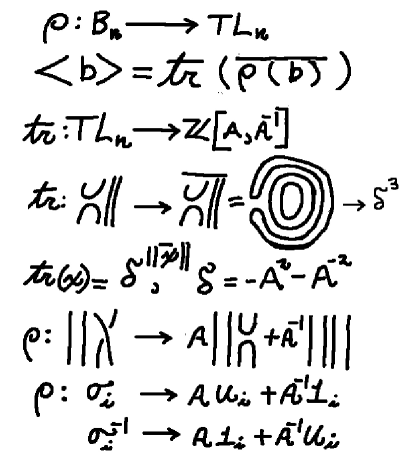 ρ : Bₙ ⟶ TLₙ
<b> = tr ( \overline{ρ(b)} )
tr : TLₙ ⟶ Z[A, A⁻¹]
tr : → = → δ³
tr(x) = δ^{||\overline{x}||}, δ = -A² - A⁻²
ρ : → A + A⁻¹
ρ : σᵢ → A Uᵢ + A⁻¹ 1ᵢ
σᵢ⁻¹ → A 1ᵢ + A⁻¹ Uᵢ